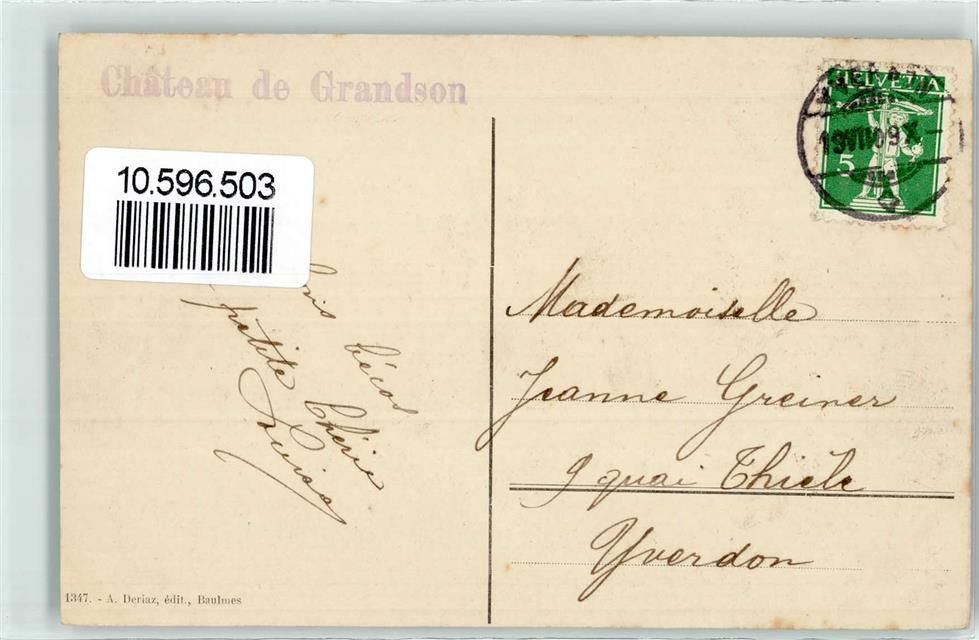 Château de Grandson
HELVETIA
5
10.596.503
bécos
Chérie
petite
Louisa
Mademoiselle
Jeanne Greiner
9 quai Thièle
Yverdon
1347. - A. Deriaz, édit., Baulmes